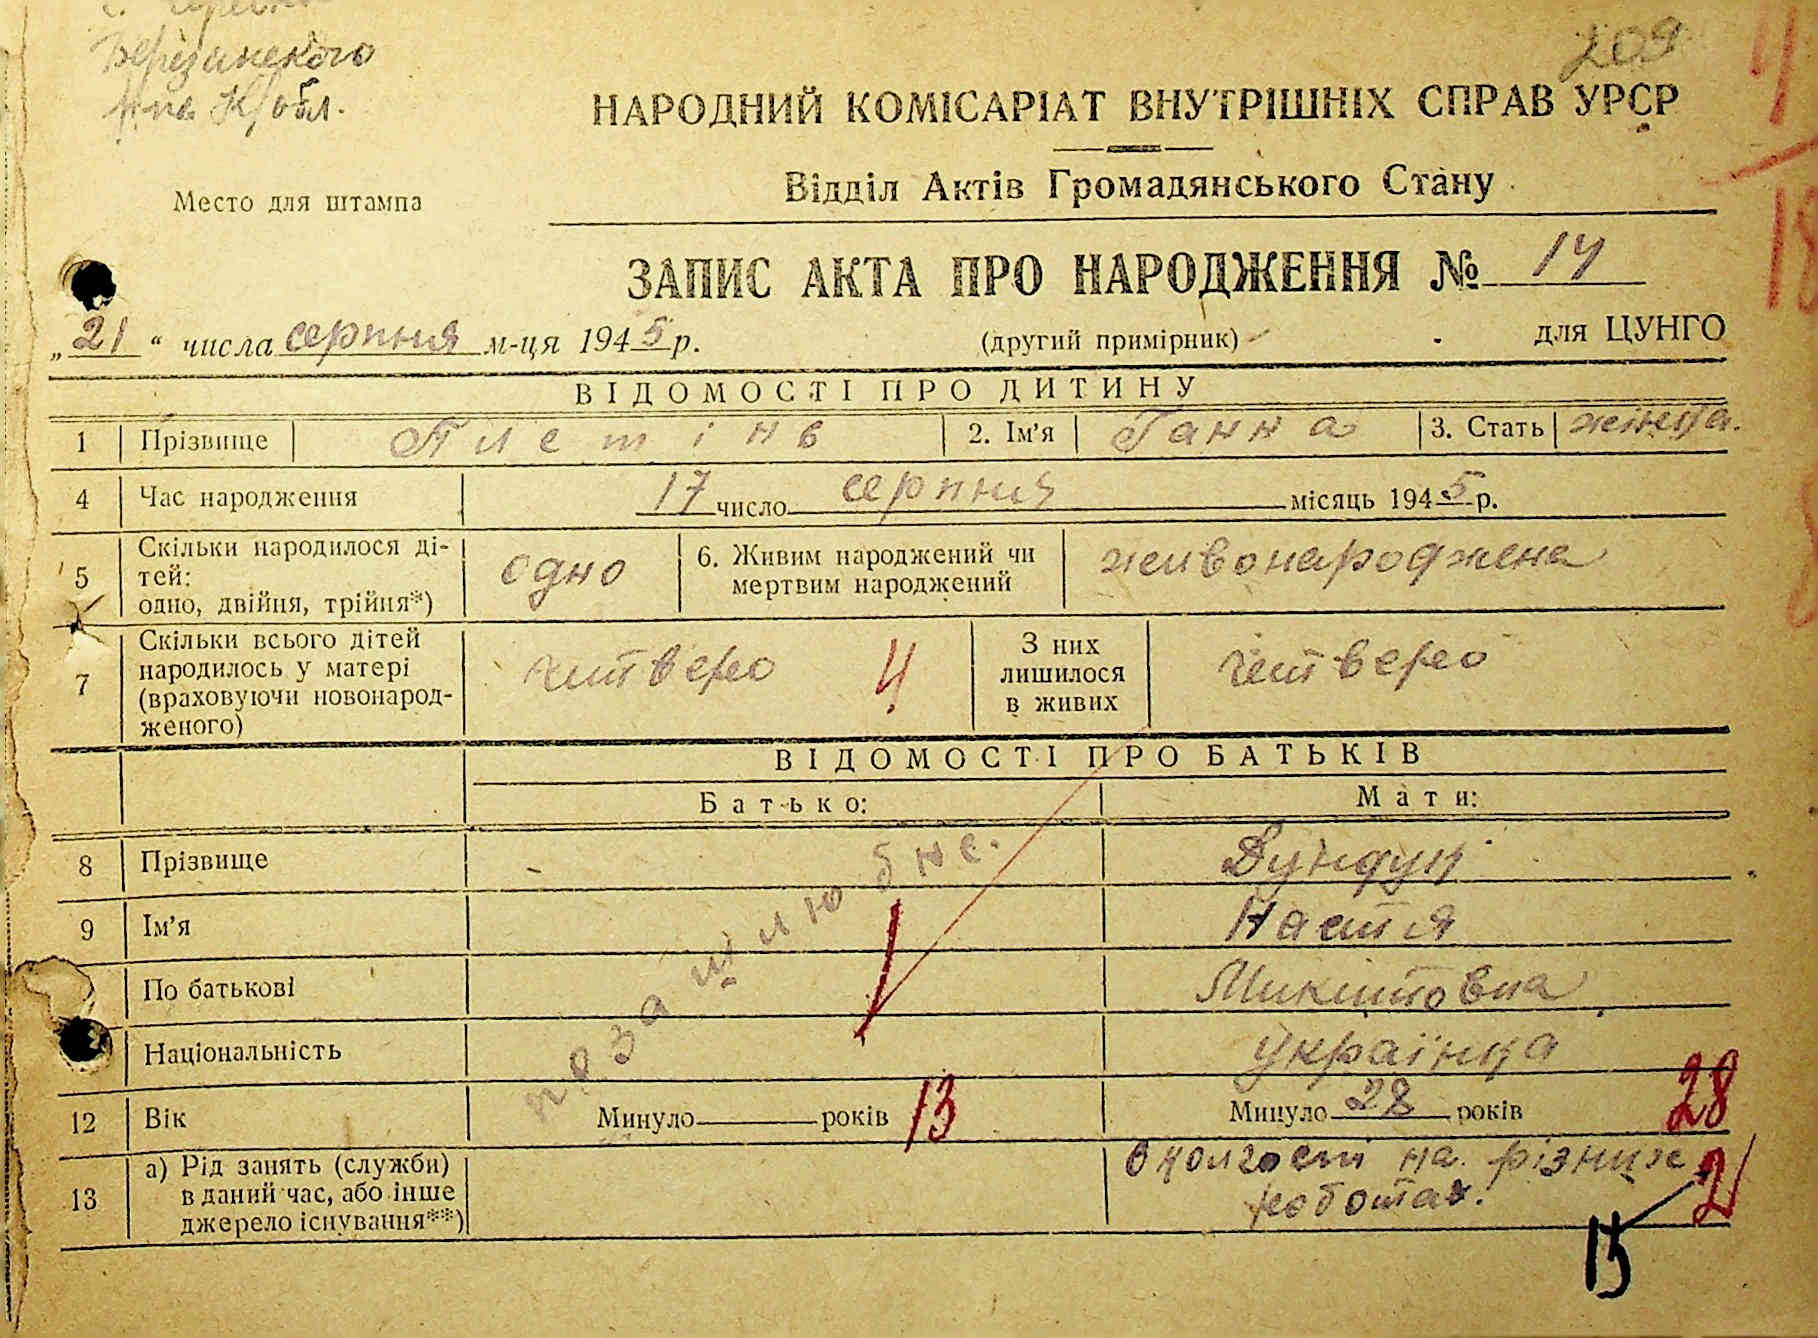 Березинського
р-на К/обл.
209
НАРОДНИЙ КОМІСАРІАТ ВНУТРІШНІХ СПРАВ УРСР
Відділ Актів Громадянського Стану
Место для штампа
ЗАПИС АКТА ПРО НАРОДЖЕННЯ № 14
„21“ числа серпня м-ця 1945 р. (другий примірник) для ЦУНГО
ВІДОМОСТІ ПРО ДИТИНУ
1 Прізвище Плетінь 2. Ім’я Ганна 3. Стать жіноча.
4 Час народження 17 число серпня місяць 1945 р.
5 Скільки народилося ді-
тей:
одно, двійня, трійня*) одно 6. Живим народжений чи
мертвим народжений живонароджена
7 Скільки всього дітей
народилось у матері
(враховуючи новонарод-
женого) читверо 4 З них
лишилося
в живих читверо
ВІДОМОСТІ ПРО БАТЬКІВ
Батько: Мати:
позашлюбне.
8 Прізвище
9 Ім’я Настя
По батькові Микитовна
Національність українка
12 Вік Минуло років 13 Минуло 28 років 28
13 а) Рід занять (служби)
в даний час, або інше
джерело існування**) в колгоспі на різних
роботах.
21
13